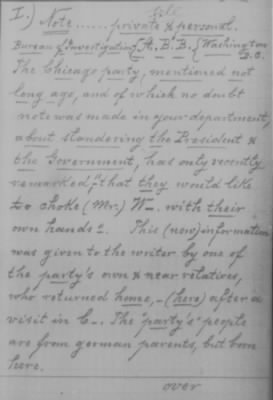 file
I.) Note ...... private & personal.
Bureau of Investigation, A. B. B. { Washington D.C.
The Chicago party, mentioned not
long ago, and of which no doubt
note was made in your department,
about slandering the President &
the Government, has only recently
remarked "that they would like
to choke (Mr.) W— with their
own hands". This (new) information
was given to the writer by one of
the party's own & near relatives,
who returned home,- (here) after a
visit in C—. The "party's" people
are from german parents, but born
here.
over